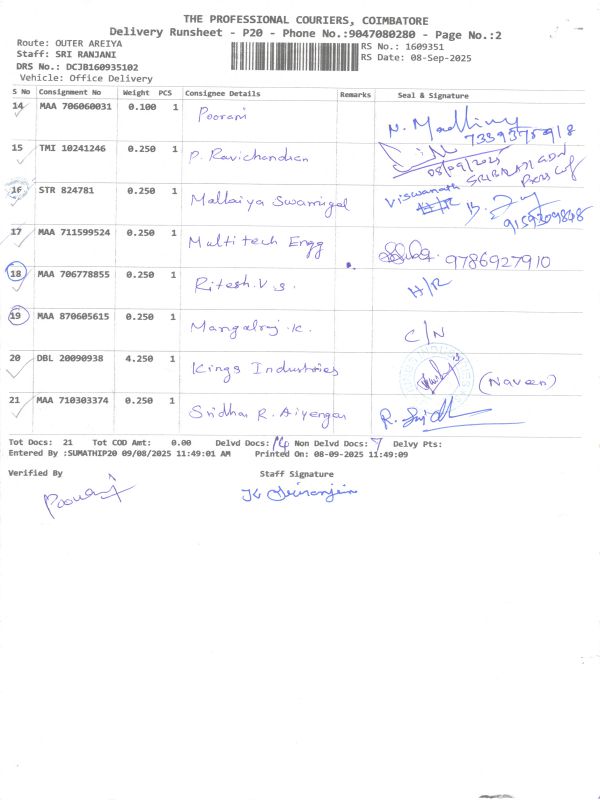 THE PROFESSIONAL COURIERS, COIMBATORE
Delivery Runsheet - P20 - Phone No.:9047080280 - Page No.:2
Route: OUTER AREIYA
Staff: SRI RANJANI
DRS No.: DCJB160935102
Vehicle: Office Delivery
RS No.: 1609351
RS Date: 08-Sep-2025
S No Consignment No Weight PCS Consignee Details Remarks Seal & Signature
14 MAA 706060031 0.100 1 Poorani N. Madhivy
15 TMI 10241246 0.250 1 P. Ravichandran 08/09/2025
16 STR 824781 0.250 1 Mallaiya Swamigal Viswanath H/R 9159309848
17 MAA 711599524 0.250 1 Multitech Engg 9786927910
18 MAA 706778855 0.250 1 Ritesh.V.S. H/R
19 MAA 870605615 0.250 1 Mangalraj.K. C/N
20 DBL 20090938 4.250 1 Kings Industries (Naveen)
21 MAA 710303374 0.250 1 Sridhar R. Aiyengar R. Sridh
Tot Docs: 21 Tot COD Amt: 0.00 Delvd Docs: 14 Non Delvd Docs: 7 Delvy Pts:
Entered By :SUMATHIP20 09/08/2025 11:49:01 AM Printed On: 08-09-2025 11:49:09
Verified By Staff Signature
Poorani